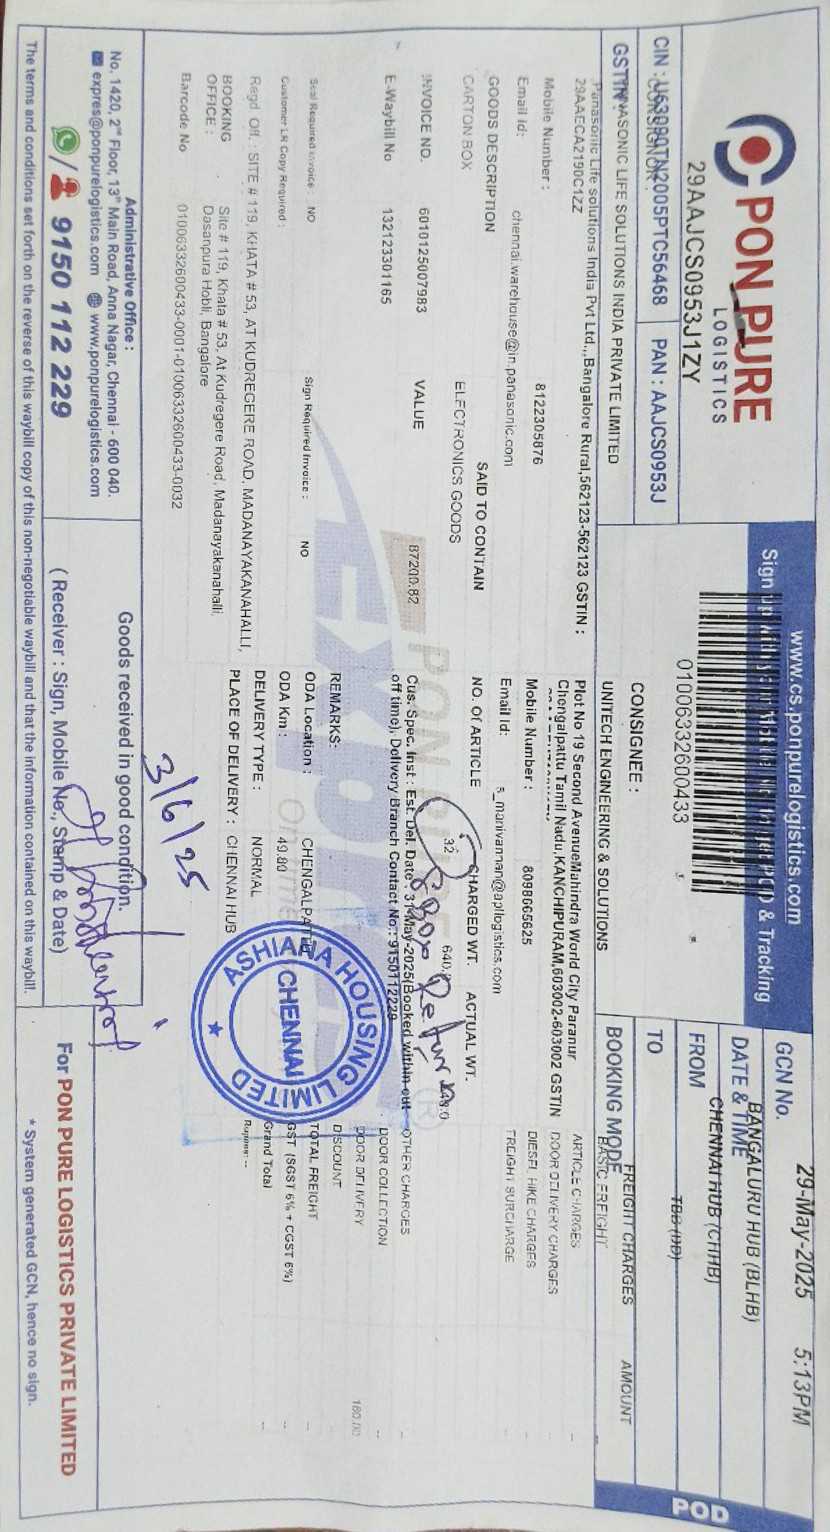 PON PURE
LOGISTICS
29AAJCS0953J1ZY
CIN : U63090TN2005PTC56468
PAN : AAJCS0953J
GSTIN
CONSIGNOR :
PANASONIC LIFE SOLUTIONS INDIA PRIVATE LIMITED
Panasonic Life solutions India Pvt Ltd.,,Bangalore Rural,562123-562123 GSTIN :
29AAECA2190C1ZZ
Mobile Number : 8122305876
Email Id: chennai.warehouse@in.panasonic.com
GOODS DESCRIPTION SAID TO CONTAIN
CARTON BOX ELECTRONICS GOODS
INVOICE NO. 6010125007983 VALUE 87200.82
E-Waybill No 132123301165
Seal Required Invoice: NO Sign Required Invoice : NO
Customer LR Copy Required :
Regd Off. : SITE # 119, KHATA # 53, AT KUDREGERE ROAD, MADANAYAKANAHALLI,
BOOKING OFFICE : Site # 119, Khata # 53, At Kudregere Road, Madanayakanahalli,
Dasanpura Hobli, Bangalore
Barcode No 01006332600433-0001-01006332600433-0032
www.cs.ponpurelogistics.com
Sign up & Tracking
01006332600433
CONSIGNEE :
UNITECH ENGINEERING & SOLUTIONS
Plot No 19 Second AvenueMahindra World City Paranur
Chengalpattu Tamil Nadu,KANCHIPURAM,603002-603002 GSTIN
Mobile Number : 8098065625
Email Id: s_manivannan@apllogistics.com
NO. Of ARTICLE CHARGED WT. ACTUAL WT.
32 640.
Cus. Spec. Inst : Est. Del. Date : 31-May-2025(Booked within cut
off time), Delivery Branch Contact No : 9150112229
REMARKS:
ODA Location : CHENGALPATTU
ODA Km : 49.80
DELIVERY TYPE : NORMAL
PLACE OF DELIVERY : CHENNAI HUB
PON PURE
Express
ASHIANA HOUSING LIMITED
CHENNAI
3/6/25
GCN No.
29-May-2025 5:13PM
DATE & TIME
BANGALURU HUB (BLHB)
FROM
CHENNAI HUB (CHHB)
TO
TBB (DD)
BOOKING MODE
FREIGHT CHARGES AMOUNT
BASIC FREIGHT --
ARTICLE CHARGES --
DOOR DELIVERY CHARGES --
DIESEL HIKE CHARGES --
FREIGHT SURCHARGE --
OTHER CHARGES --
DOOR COLLECTION --
DOOR DELIVERY 180.00
DISCOUNT
TOTAL FREIGHT --
GST (SGST 6% + CGST 6%) --
Grand Total --
Rupees: --
POD
Administrative Office :
No. 1420, 2nd Floor, 13th Main Road, Anna Nagar, Chennai - 600 040.
expres@ponpurelogistics.com www.ponpurelogistics.com
/ 9150 112 229
Goods received in good condition.
( Receiver : Sign, Mobile No., Stamp & Date)
For PON PURE LOGISTICS PRIVATE LIMITED
The terms and conditions set forth on the reverse of this waybill copy of this non-negotiable waybill and that the information contained on this waybill.
* System generated GCN, hence no sign.